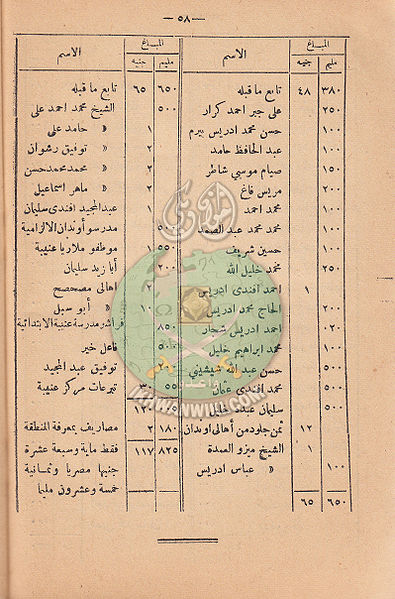 — ٥٨ —
المبلغ الاسم
مليم جنيه
٣٨٠ ٤٨ تابع ما قبله
٢٥٠ على جبر احمد كرار
١٠٠ حسن محمد ادريس بيرم
١٠٠ عبد الحافظ حامد
١٥٠ صيام موسي شاطر
٢٠٠ مريس فاغ
١٠٠ محمد احمد
١٠٠ محمد محمد عبد الصمد
١٠٠ حسين شريف
٢٥٠ محمد خليل الله
١ احمد افندى ادريس
٢٠٠ الحاج محمد ادريس
٠٢٠ احمد ادريس شحار
١٠٠ محمد ابراهيم خليل
٥٠٠ حسن عبد الله شيشيني
٥٠٠ محمد افندى عثمان
٥٠٠ سليمان عبد خليل
١٢ ثمن جلود من أهالى اوندان
١ الشيخ ميزو العمدة
١٠٠ » عباس ادريس
٦٥٠ ٦٥
المبلغ الاسم
مليم جنيه
٦٥٠ ٦٥ تابع ما قبله
٥٠٠ الشيخ محمد احمد على
١ » حامد على
٢ » توفيق رشوان
٢ » محمد محمد حسن
٢ » ماهر اسماعيل
١ عبد المجيد افندى سليمان
٥٠٠ مدرسو أوندان الالزامية
٥٠٠ موظفو ملاريا عنيبة
٢٠٠ أبا زيد سليمان
٢ اهالى مصمصح
١٠ » أبو سبل
٨٥٠ فراشو مدرسة عنيبة الابتدائية
٥٠٠ فاعل خير
٢٠٠ توفيق عبد المجيد
٣٠ تبرعات مركز عنيبة
١٨٠ ٢ مصاريف بمعرفة المنطقة
٨٢٥ ١١٧ فقط ماية وسبعة عشرة
جنيها مصريا وثمانية
خمسة وعشرون مليما
IKHWANWIKI.COM